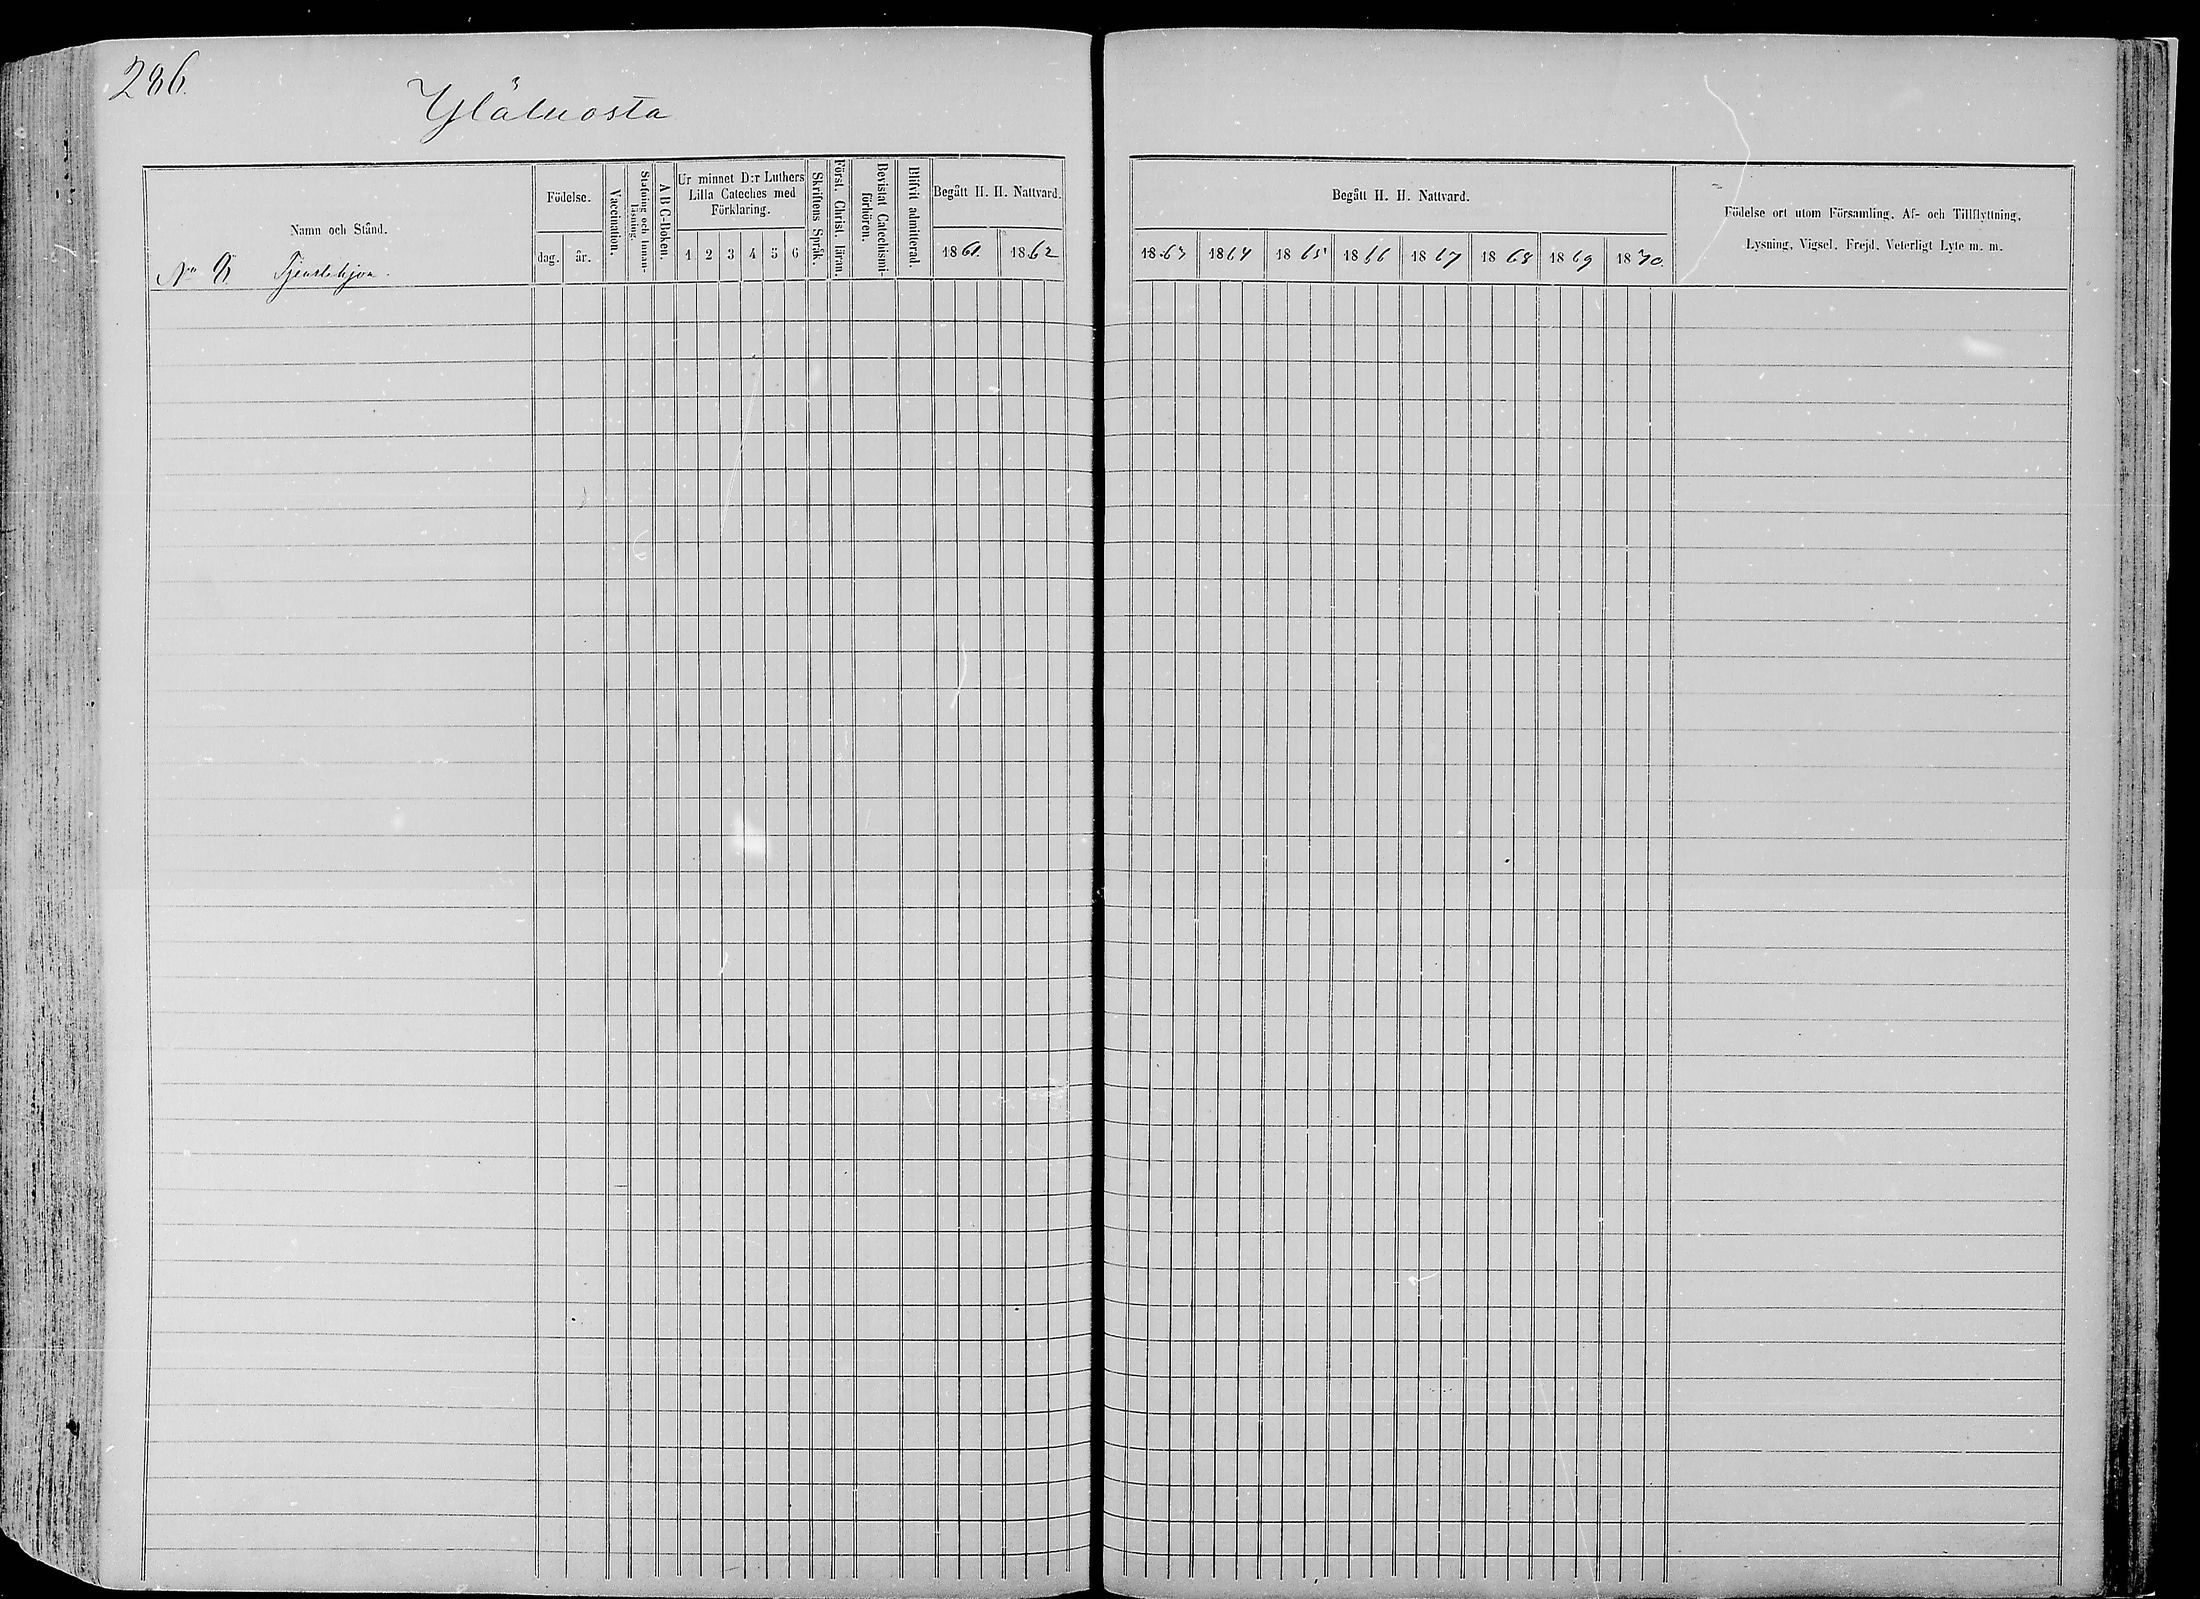 286.
Yläluosta
Namn och Stånd.
No 8 Tjenstehjon.
Födelse.
dag. år.
Vaccination.
Stafning och Innanläsning.
A B C-Boken.
Ur minnet D:r Luthers
Lilla Cateches med
Förklaring.
1 2 3 4 5 6
Skriftens Språk.
Först. Christ. läran.
Bevistat Catechismiförhören.
Blifvit admitterad.
Begått H. H. Nattvard.
1861. 1862
Begått H. H. Nattvard.
1863 1864 1865 1866 1867 1868 1869 1870.
Födelse ort utom Församling, Af- och Tillflyttning,
Lysning, Vigsel, Frejd, Veterligt Lyte m. m.